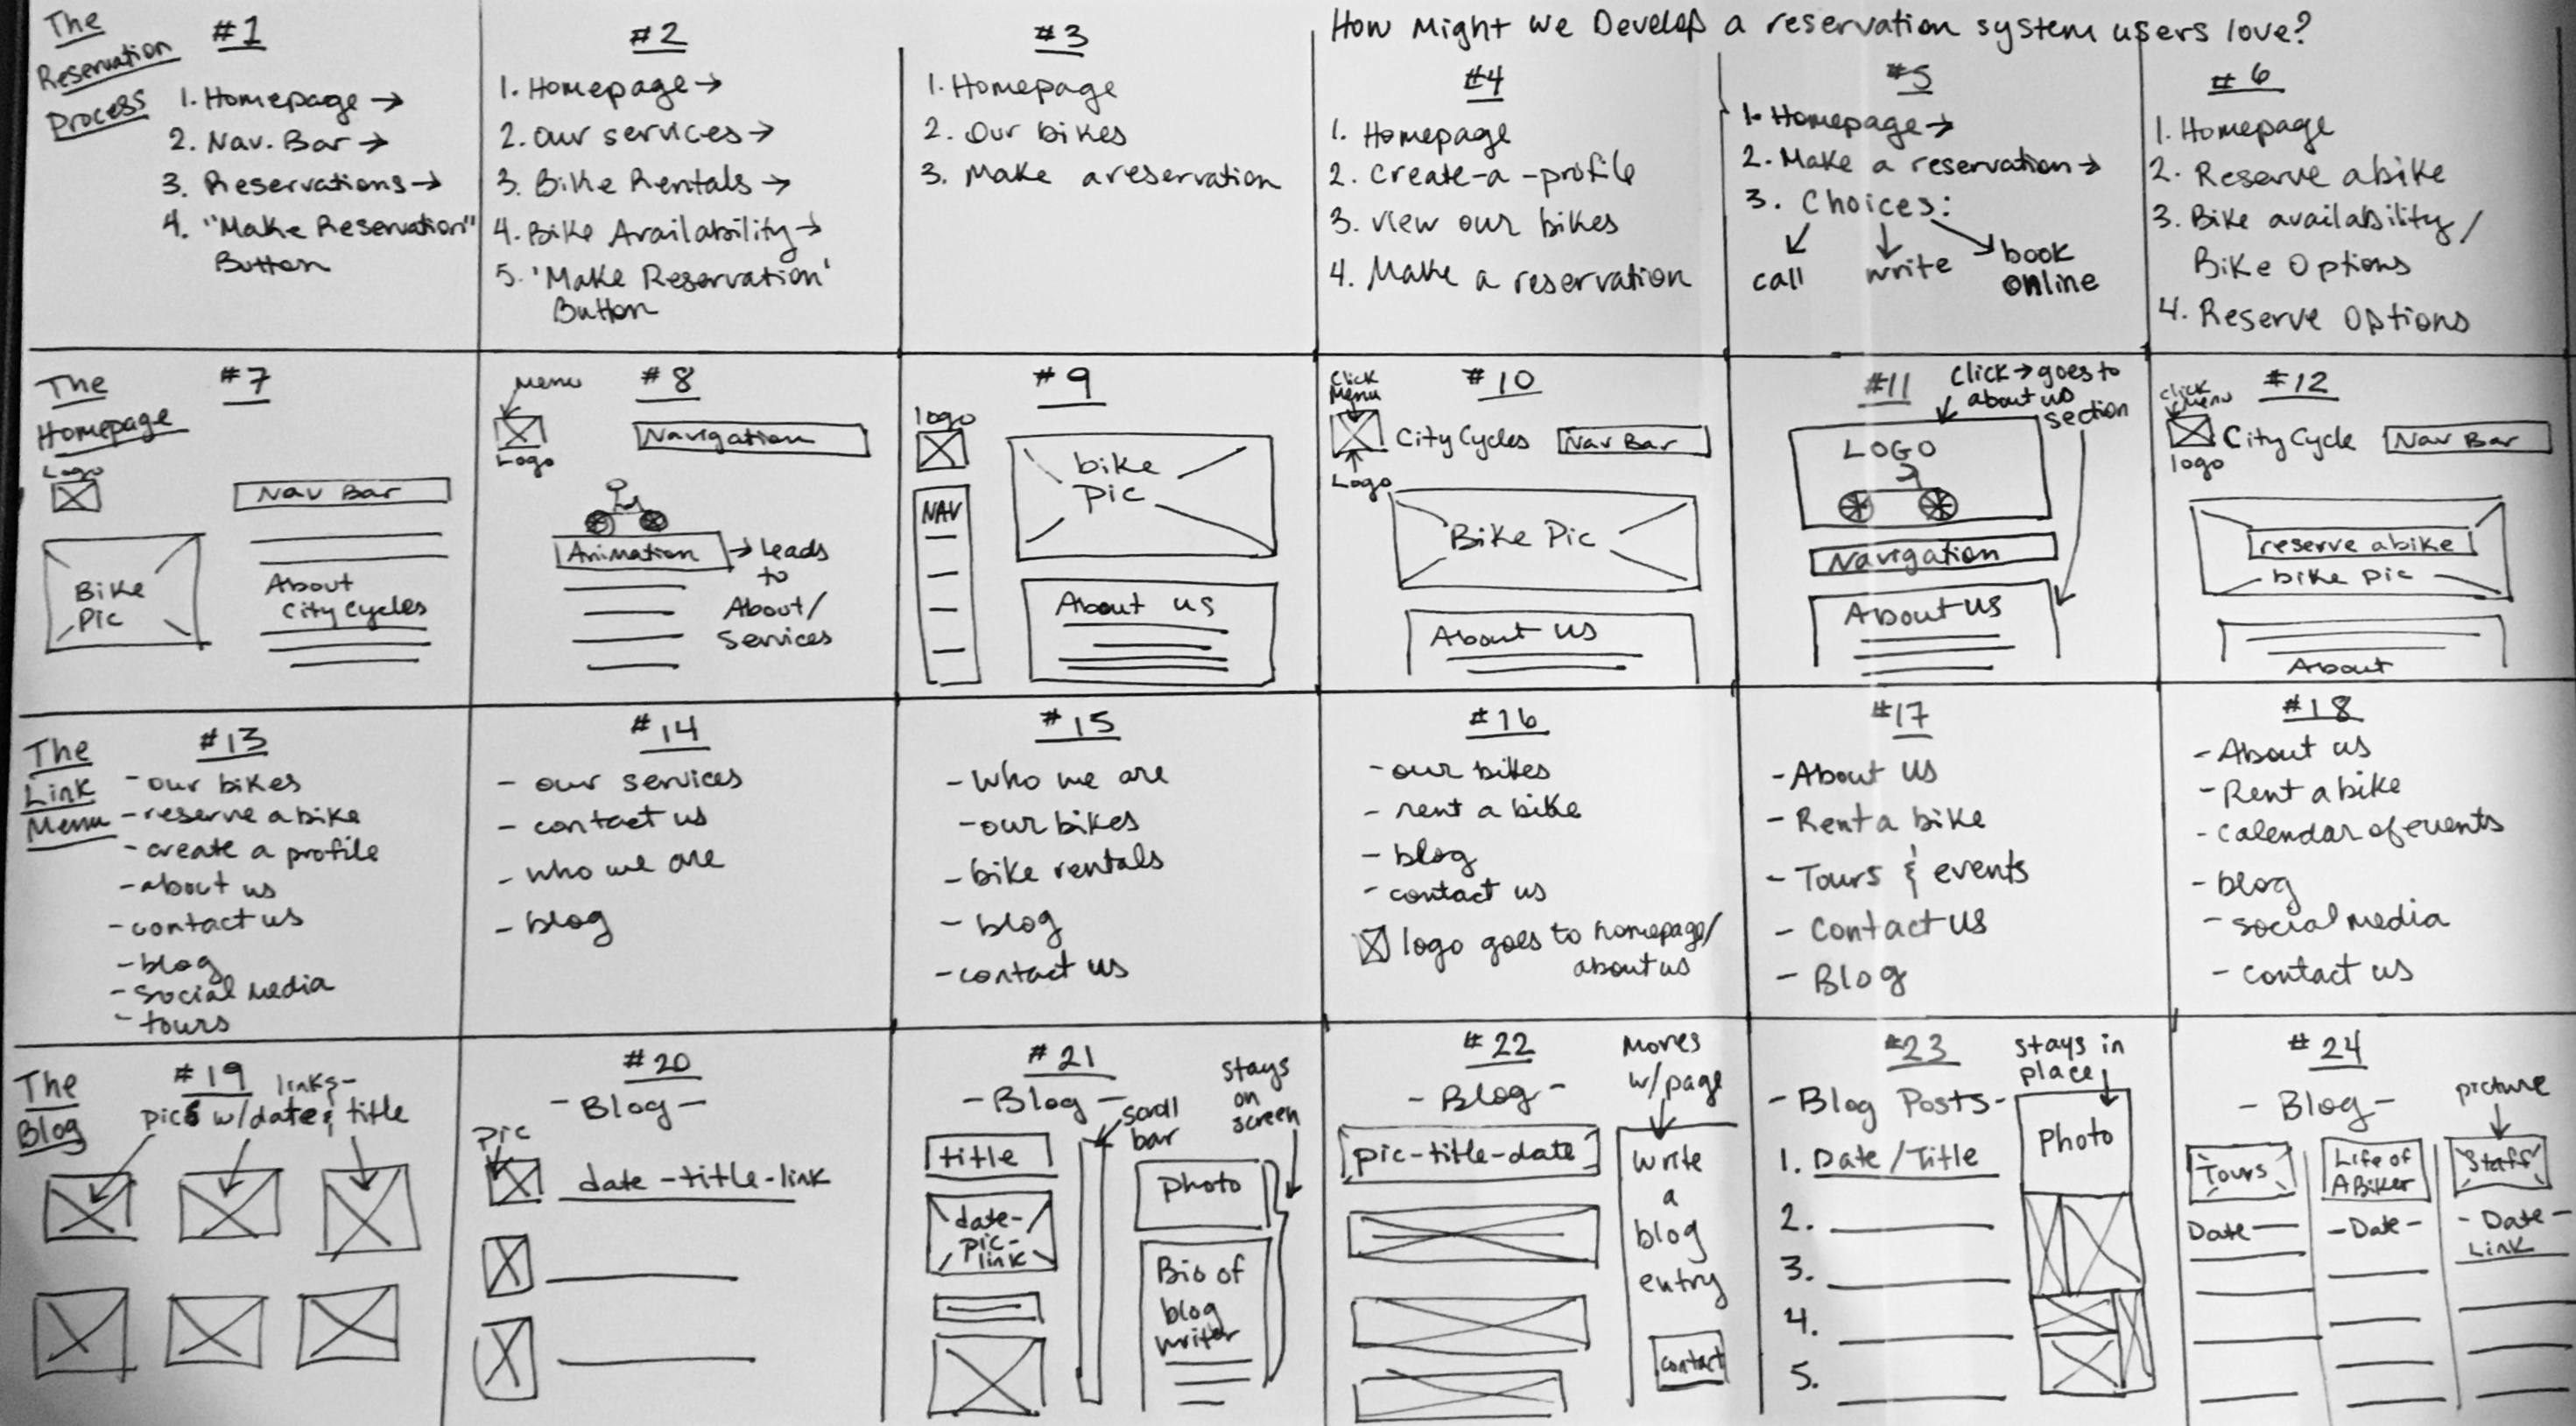 How Might We Develop a reservation system users love?
The
Reservation
Process
#1
1. Homepage →
2. Nav. Bar →
3. Reservations →
4. "Make Reservation"
Button
#2
1. Homepage →
2. Our services →
3. Bike Rentals →
4. Bike Availability →
5. 'Make Reservation'
Button
#3
1. Homepage
2. Our bikes
3. Make a reservation
#4
1. Homepage
2. Create-a-profile
3. View our bikes
4. Make a reservation
#5
1. Homepage →
2. Make a reservation →
3. Choices:
call
write
book
online
#6
1. Homepage
2. Reserve a bike
3. Bike availability/
Bike Options
4. Reserve Options
The
Homepage
#7
Logo
Nav Bar
Bike
Pic
About
City Cycles
#8
Menu
Logo
Navigation
Animation → Leads
to
About/
Services
#9
logo
NAV
bike
pic
About us
#10
Click
Menu
City Cycles
Nav Bar
Logo
Bike Pic
About us
#11
Click → goes to
about us
section
LOGO
Navigation
About us
#12
click
menu
City Cycle
Nav Bar
logo
reserve a bike
bike pic
About
The
Link
Menu
#13
- our bikes
- reserve a bike
- create a profile
- about us
- contact us
- blog
- social media
- tours
#14
- our services
- contact us
- who we are
- blog
#15
- Who we are
- our bikes
- bike rentals
- blog
- contact us
#16
- our bikes
- rent a bike
- blog
- contact us
logo goes to homepage/
about us
#17
- About us
- Rent a bike
- Tours & events
- Contact us
- Blog
#18
- About us
- Rent a bike
- calendar of events
- blog
- social media
- contact us
The
Blog
#19
links-
pics w/date & title
#20
- Blog -
pic
date - title - link
#21
- Blog -
scroll
bar
stays
on
screen
title
date-
pic-
link
photo
Bio of
blog
writer
#22
- Blog -
moves
w/page
pic-title-date
write
a
blog
entry
contact
#23
stays in
place
- Blog Posts -
1. Date/Title
2.
3.
4.
5.
photo
#24
- Blog -
picture
Tours
Life of
A Biker
Staff
Date
- Date -
- Date -
Link